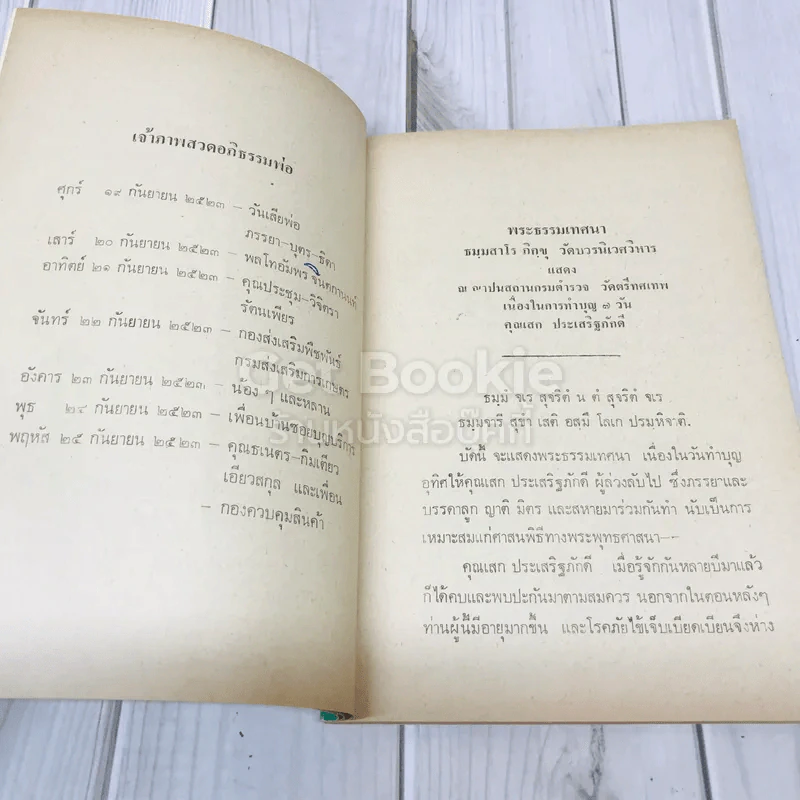 เจ้าภาพสวดอภิธรรมพ่อ
ศุกร์ ๑๙ กันยายน ๒๕๒๓ – วันเสียพ่อ
ภรรยา–บุตร–ธิดา
เสาร์ ๒๐ กันยายน ๒๕๒๓ – พลโทอัมพร จินตกานนท์
อาทิตย์ ๒๑ กันยายน ๒๕๒๓ – คุณประชุม–วิจิตรา
รัตนเพียร
จันทร์ ๒๒ กันยายน ๒๕๒๓ – กองส่งเสริมพืชพันธุ์
กรมส่งเสริมการเกษตร
อังคาร ๒๓ กันยายน ๒๕๒๓ – น้อง ๆ และหลาน
พุธ ๒๔ กันยายน ๒๕๒๓ – เพื่อนบ้านซอยบุญบริการ
พฤหัส ๒๕ กันยายน ๒๕๒๓ – คุณธเนตร–กิมเตียว
เอียวสกุล และเพื่อน
– กองควบคุมสินค้า
พระธรรมเทศนา
ธมฺมสาโร ภิกฺขุ วัดบวรนิเวศวิหาร
แสดง
ณ ฌาปนสถานกรมตำรวจ วัดตรีทศเทพ
เนื่องในการทำบุญ ๗ วัน
คุณเสก ประเสริฐภักดี
ธมฺมํ จเร สุจริตํ น ตํ ทุจริตํ จเร
ธมฺมจารี สุขํ เสติ อสฺมึ โลเก ปรมฺหิจาติ.
บัดนี้ จะแสดงพระธรรมเทศนา เนื่องในวันทำบุญ
อุทิศให้คุณเสก ประเสริฐภักดี ผู้ล่วงลับไป ซึ่งภรรยาและ
บรรดาลูก ญาติ มิตร และสหายมาร่วมกันทำ นับเป็นการ
เหมาะสมแก่ศาสนพิธีทางพระพุทธศาสนา—
คุณเสก ประเสริฐภักดี เมื่อรู้จักกันหลายปีมาแล้ว
ก็ได้คบและพบปะกันมาตามสมควร นอกจากในตอนหลังๆ
ท่านผู้นี้มีอายุมากขึ้น และโรคภัยไข้เจ็บเบียดเบียนจึงห่าง
Get Bookie
ร้านหนังสือบุ๊คกี้